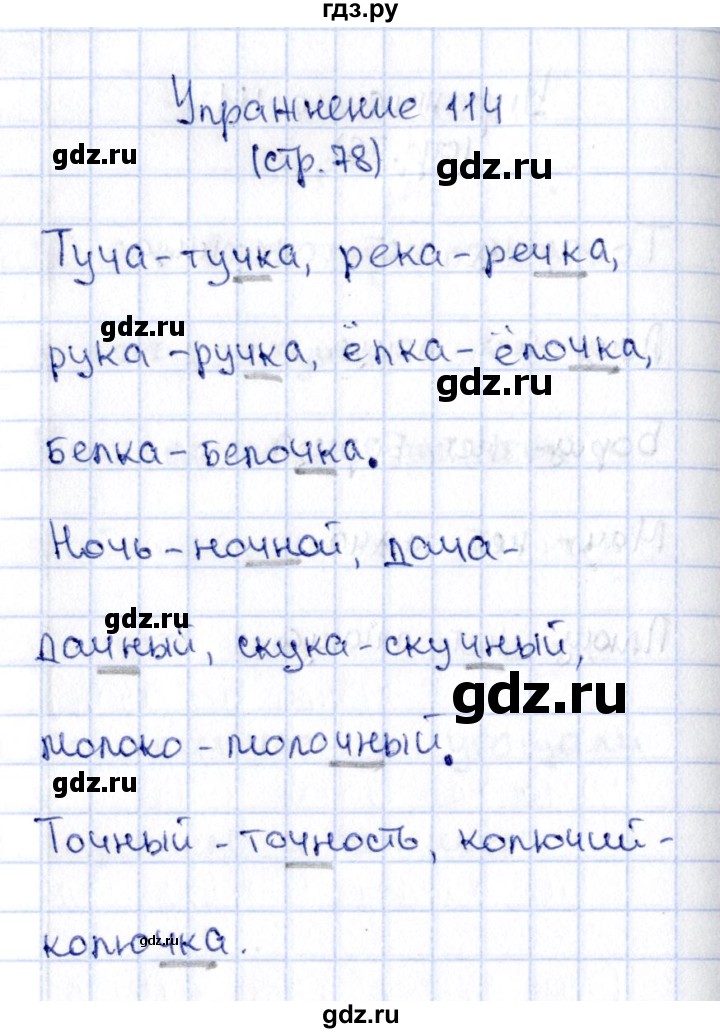 гдз.ру
Упражнение 114
gdz.ru
(стр. 78)
gdz.ru
Туча - тучка, река - речка,
gdz.ru
рука - ручка, ёлка - ёлочка,
gdz.ru
белка - белочка.
Ночь - ночной, дача -
gdz.ru
дачный, скука - скучный,
gdz.ru
молоко - молочный.
gdz.ru
Точный - точность, колючий -
gdz.ru
колючка.
gdz.ru